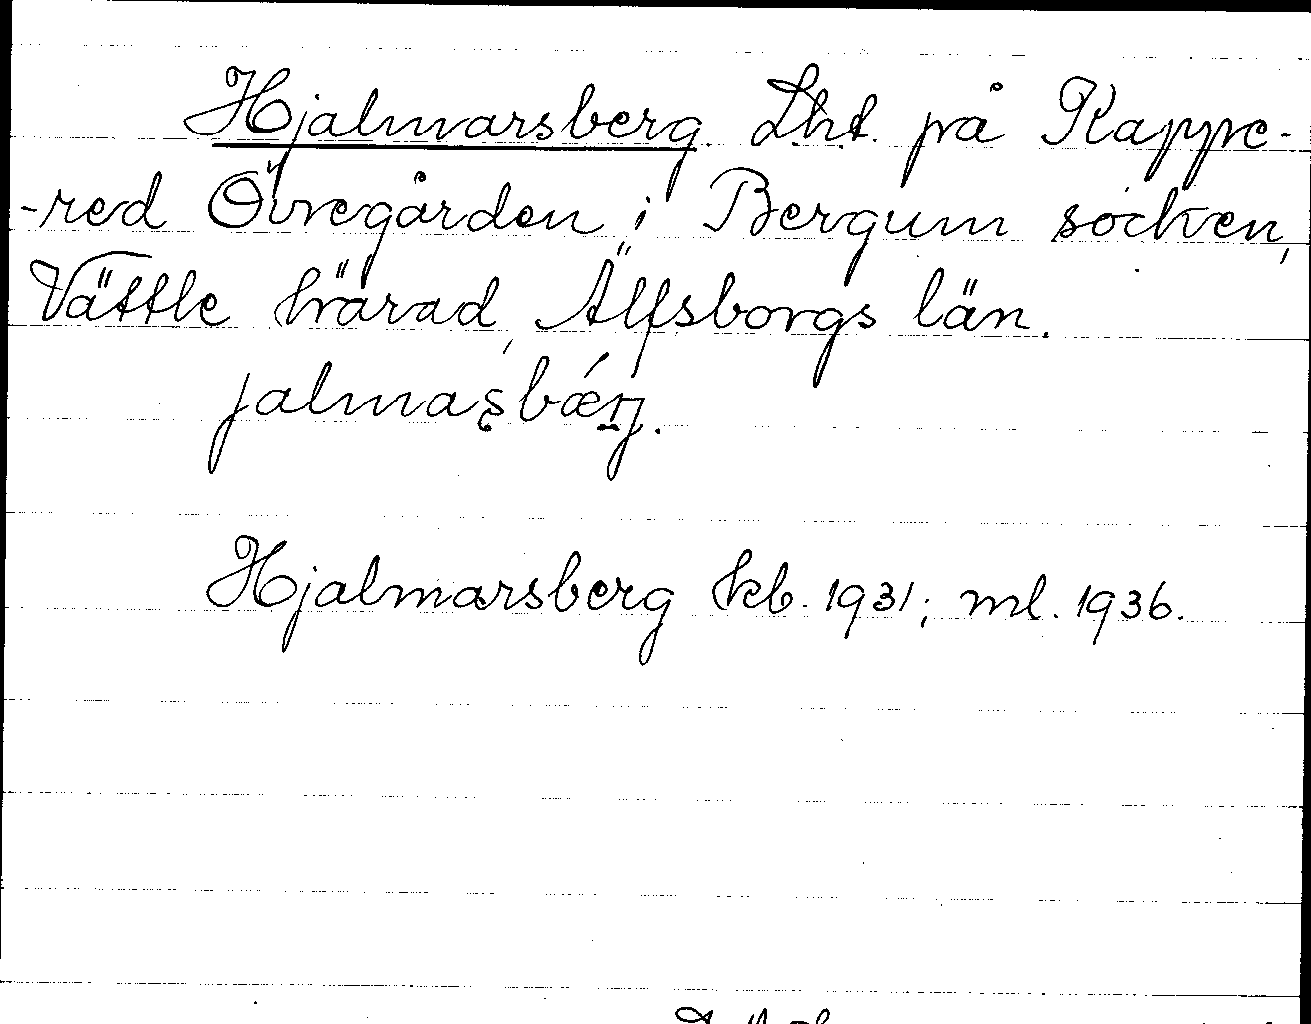 Hjalmarsberg. Lht. på Kappe-
-red Övregården i Bergum socken,
Vättle härad, Älfsborgs län.
jalmaʂbǽrj.
Hjalmarsberg kb. 1931; ml. 1936.